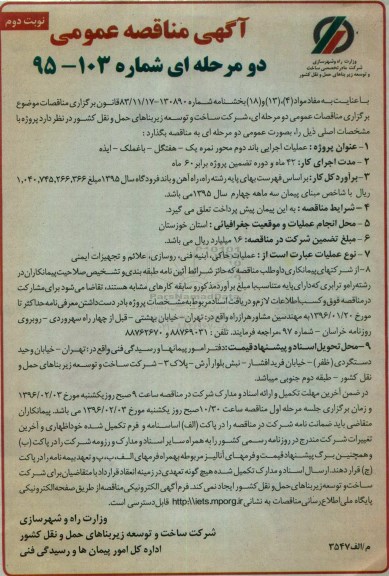 نوبت دوم
وزارت راه و شهرسازی
شرکت مادر تخصصی ساخت
و توسعه زیربناهای حمل و نقل کشور
آگهی مناقصه عمومی
دو مرحله ای شماره ۱۰۳- ۹۵
با عنایت به مفاد مواد (۴)، (۱۳) و (۱۸) بخشنامه شماره ۱۳۰۸۹۰-۸۳/۱۱/۱۷ قانون برگزاری مناقصات موضوع
برگزاری مناقصات عمومی دو مرحله ای، شرکت ساخت و توسعه زیربناهای حمل و نقل کشور در نظر دارد پروژه با
مشخصات اصلی ذیل را، بصورت عمومی دو مرحله ای به مناقصه بگذارد :
۱- عنوان پروژه : عملیات اجرایی باند دوم محور نمره یک - هفتگل - باغملک - ایذه
۲- مدت اجرای کار: ۴۲ ماه و دوره تضمین پروژه برابر ۶۰ ماه
۳- برآورد کل کار: بر اساس فهرست بهای پایه رشته راه، راه آهن و باند فرودگاه سال ۱۳۹۵ مبلغ ۱،۰۴۰،۷۴۵،۲۶۶،۳۶۶
ریال با شاخص مبنای پیمان سه ماهه چهارم سال ۱۳۹۵ می باشد.
۴- شرایط مناقصه : به این پیمان پیش پرداخت تعلق می گیرد.
۵- محل انجام عملیات و موقعیت جغرافیائی : استان خوزستان
۶- مبلغ تضمین شرکت در مناقصه: ۱۶ میلیارد ریال می باشد.
۷- نوع عملیات عبارت است از : عملیات خاکی، ابنیه فنی، روسازی، علائم و تجهیزات ایمنی
۸- از شرکتهای پیمانکاری داوطلب مناقصه که حائز شرائط آئین نامه طبقه بندی و تشخیص صلاحیت پیمانکاران در
رشته راه و ترابری که دارای پایه متناسب با مبلغ برآورد مذکور و سابقه کارهای مشابه هستند، تقاضا می شود برای مشارکت
در مناقصه فوق و کسب اطلاعات لازم و دریافت اسناد مربوط به مشخصات پروژه با در دست داشتن معرفی نامه حداکثر تا
مورخ ۱۳۹۶/۰۱/۲۰ به مهندسین مشاور هراز راه واقع در: تهران- خیابان بهشتی - قبل از چهار راه سهروردی - روبروی
روزنامه خراسان - شماره ۹۷ مراجعه فرمایند. تلفن : ۸۸۷۶۹۰۳۱ و ۸۸۷۶۲۶۷۰
۹- محل تحویل اسناد و پیشنهاد قیمت: دفتر امور پیمانها و رسیدگی فنی واقع در: تهران- خیابان وحید
دستگردی (ظفر) - خیابان فرید افشار - نبش بلوار آرش - پلاک ۳- شرکت ساخت و توسعه زیربناهای حمل و
نقل کشور - طبقه دوم جنوبی میباشد.
در ضمن آخرین مهلت تکمیل و ارائه اسناد و مدارک شرکت در مناقصه ساعت ۹ صبح روز یکشنبه مورخ ۱۳۹۶/۰۲/۰۳
و زمان برگزاری جلسه مرحله اول مناقصه ساعت ۱۰/۳۰ صبح روز یکشنبه مورخ ۱۳۹۶/۰۲/۰۳ می باشد. پیمانکاران
متقاضی باید ضمانت نامه شرکت در مناقصه را در پاکت (الف) اساسنامه و فرم تکمیل شده خوداظهاری و آخرین
تغییرات شرکت مندرج در روزنامه رسمی کشور را به همراه سایر اسناد و مدارک و رزومه شرکت را در پاکت (ب)
و همچنین برگ پیشنهاد قیمت و فرمهای آنالیز مربوطه بهمراه فرمهای الف، ب، پ و تعهد بیمه نامه را در پاکت
(ج) قرار دهند. ارسال اسناد و مدارک تکمیل شده هیچ گونه تعهدی در زمینه انعقاد قرارداد با متقاضیان برای شرکت
ساخت و توسعه زیربناهای حمل و نقل کشور ایجاد نمی کند. فرم آگهی الکترونیکی مناقصه از طریق صفحه الکترونیکی
پایگاه ملی اطلاع رسانی مناقصات به نشانی http:\\iets.mporg.ir قابل دسترسی است.
وزارت راه و شهرسازی
شرکت ساخت و توسعه زیربناهای حمل و نقل کشور
اداره کل امور پیمان ها و رسیدگی فنی
م/الف ۳۵۴۷